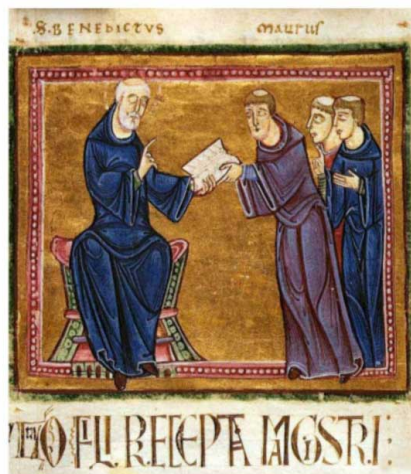 .S. BENEDICTVS MAURUS
O FILI RECEPTA MAGISTRI: